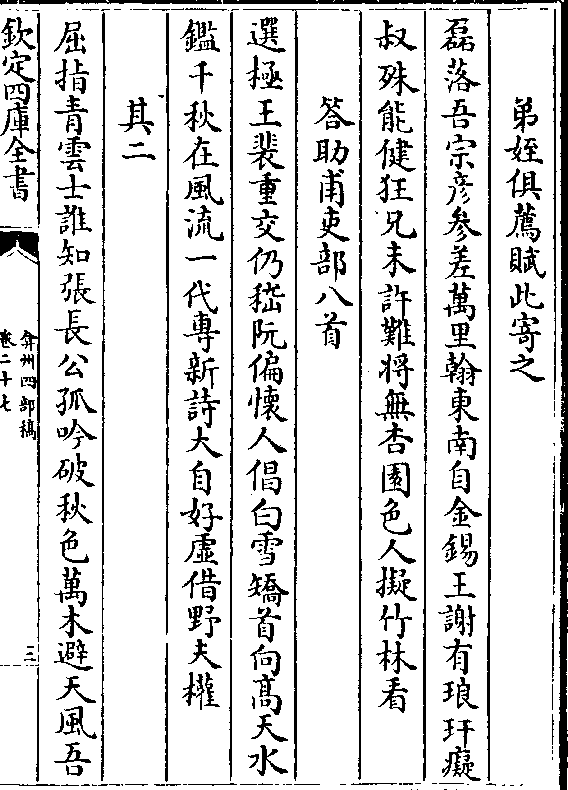 弟姪俱薦賦此寄之
磊落吾宗彦參差萬里翰東南自金錫王謝有琅玕癡
叔殊能健狂兄未許難將無杏園色人擬竹林看
答助甫吏部八首
選極王裴重交仍嵇阮偏懷人倡白雪矯首向髙天水
鑑千秋在風流一代專新詩大自好虛借野夫權
其二
屈指青雲士誰知張長公孤吟破秋色萬木避天風吾
欽定四庫全書
弇州四部稿
卷二十七
三